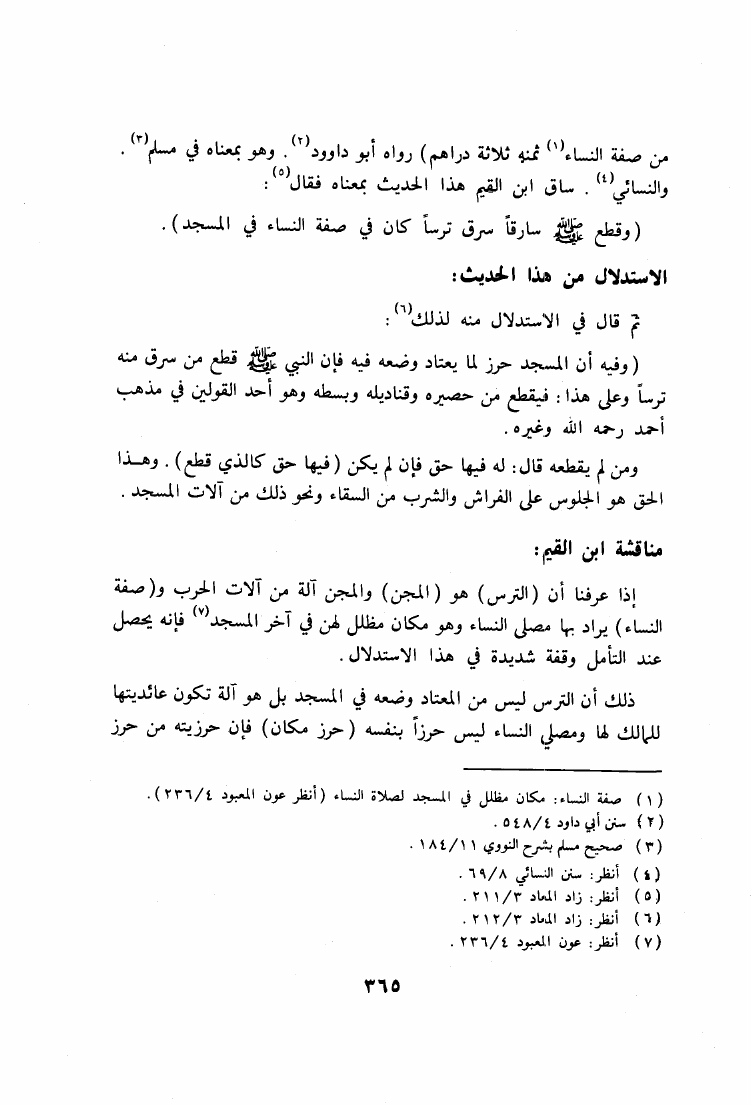 من صفة النساء(١) ثمنه ثلاثة دراهم) رواه أبو داوود(٢). وهو بمعناه في مسلم(٣).
والنسائي(٤). ساق ابن القيم هذا الحديث بمعناه فقال(٥):
(وقطع ﷺ سارقاً سرق ترساً كان في صفة النساء في المسجد).
الاستدلال من هذا الحديث:
ثم قال في الاستدلال منه لذلك(٦):
(وفيه أن المسجد حرز لما يعتاد وضعه فيه فإن النبي ﷺ قطع من سرق منه
ترساً وعلى هذا: فيقطع من حصيره وقناديله وبسطه وهو أحد القولين في مذهب
أحمد رحمه الله وغيره.
ومن لم يقطعه قال: له فيها حق فإن لم يكن (فيها حق كالذي قطع). وهـذا
الحق هو الجلوس على الفراش والشرب من السقاء ونحو ذلك من آلات المسجد.
مناقشة ابن القيم:
إذا عرفنا أن (الترس) هو (المجن) والمجن آلة من آلات الحرب و(صفة
النساء) يراد بها مصلى النساء وهو مكان مظلل لهن في آخر المسجد(٧) فإنه يحصل
عند التأمل وقفة شديدة في هذا الاستدلال.
ذلك أن الترس ليس من المعتاد وضعه في المسجد بل هو آلة تكون عائديتها
للمالك لها ومصلي النساء ليس حرزاً بنفسه (حرز مكان) فإن حرزيته من حرز
(١) صفة النساء: مكان مظلل في المسجد لصلاة النساء (أنظر عون المعبود ٢٣٦/٤).
(٢) سنن أبي داود ٥٤٨/٤.
(٣) صحيح مسلم بشرح النووي ١٨٤/١١.
(٤) أنظر: سنن النسائي ٦٩/٨.
(٥) أنظر: زاد المعاد ٢١١/٣.
(٦) أنظر: زاد المعاد ٢١٢/٣.
(٧) أنظر: عون المعبود ٢٣٦/٤.
٣٦٥